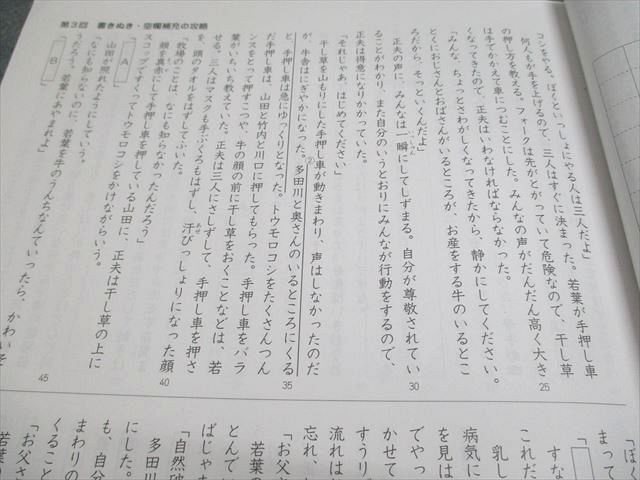 第3回 書きぬき・空欄補充の攻略
コシをやる。ぼくといっしょにやる人は三人だよ」
何人もが手を上げるので、三人はすぐに決まった。若葉が手押し車
の押し方を教える。フォークは先がとがっていて危険なので、干し草
は手でかかえて車につむことにした。みんなの声がだんだん高く大き
くなってきたので、正夫はいわなければならなかった。
25
「みんな、ちょっとさわがしくなってきたから、静かにしてください。
とくにおじさんとおばさんがいるところが、お産をする牛のいるとこ
ろだから、そっといくんだよ」
正夫の声に、みんなは一瞬にしてしずまる。自分が尊敬されてい
いっしゅん
ることがわかり、また自分のいうとおりにみんなが行動をするので、
30
正夫は得意になりかかっていた。
「それじゃあ、はじめてください」
干し草を山もりにした手押し車が動きまわり、声はしなかったのだ
が、牛舎はにぎやかになった。②多田川と奥さんのいるところにくる
と、手押し車は急にゆっくりとなった。トウモロコシをたくさんつん
35
だ手押し車は、山田と竹内と川口に押してもらった。手押し車をバラ
ンスをとって押すこつや、牛の顔の前に干し草をおくことなどは、若
葉がいちいち教えていた。正夫は三人にさしずして、手押し車を押さ
せる。三人はマスクも手ぶくろもはずし、汗びっしょりになった顔
を、頭のタオルをはずしてふいた。
40
「牧場のことは、なにも知らなかったんだろう」
顔を真赤にして手押し車を押している山田に、正夫は干し草の上に
スコップですくってトウモロコシをかけながらいう。
「A」
山田が照れたようにしていう。
45
「なにも知らないのに、若葉を牛のうんちなんていったら、かわいそ
うだろう。若葉にあやまれよ」
「B」
「ぼん
まって
「
すな
これだ
乳し
病気に
を見は
でやっ
かせて
すうリブ
流れは
忘れ、
「お父さ
若葉の
とんで
ばじゃ
「自然破
多田川
にした。
も、自分
まわりの
くること
「お父さ
若葉